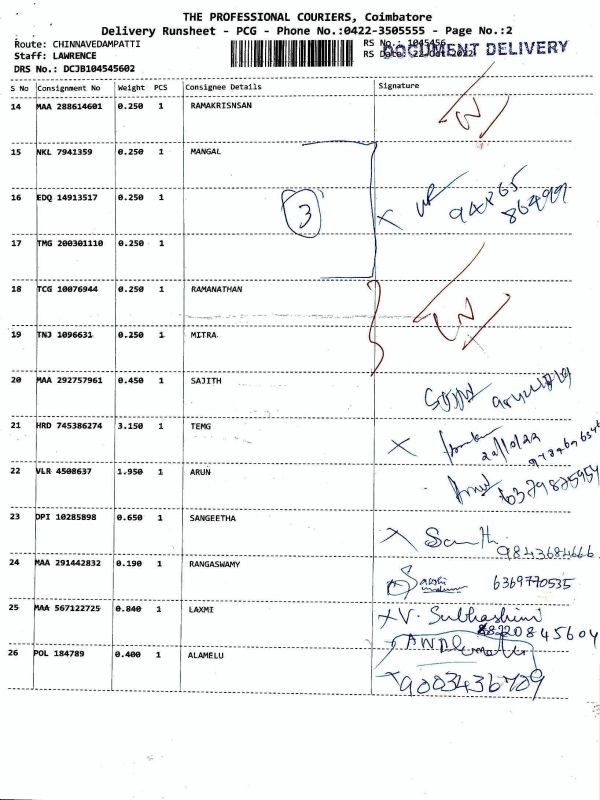 THE PROFESSIONAL COURIERS, Coimbatore
Delivery Runsheet - PCG - Phone No.:0422-3505555 - Page No.:2
Route: CHINNAVEDAMPATTI RS No.: 1045456
DOCUMENT DELIVERY
Staff: LAWRENCE RS Date: 22-Oct-2022
DRS No.: DCJB104545602
S No Consignment No Weight PCS Consignee Details Signature
14 MAA 288614601 0.250 1 RAMAKRISNSAN
15 NKL 7941359 0.250 1 MANGAL
16 EDQ 14913517 0.250 1
3
17 TMG 200301110 0.250 1
18 TCG 10076944 0.250 1 RAMANATHAN
19 TNJ 1096631 0.250 1 MITRA
20 MAA 292757961 0.450 1 SAJITH
21 HRD 745386274 3.150 1 TEMG
22/10/22
22 VLR 4508637 1.950 1 ARUN
6379875954
23 DPI 10285898 0.650 1 SANGEETHA
9843684666
24 MAA 291442832 0.190 1 RANGASWAMY
6369770535
25 MAA 567122725 0.840 1 LAXMI X V. Subhashini
8220845604
26 POL 184789 0.400 1 ALAMELU
9003436709